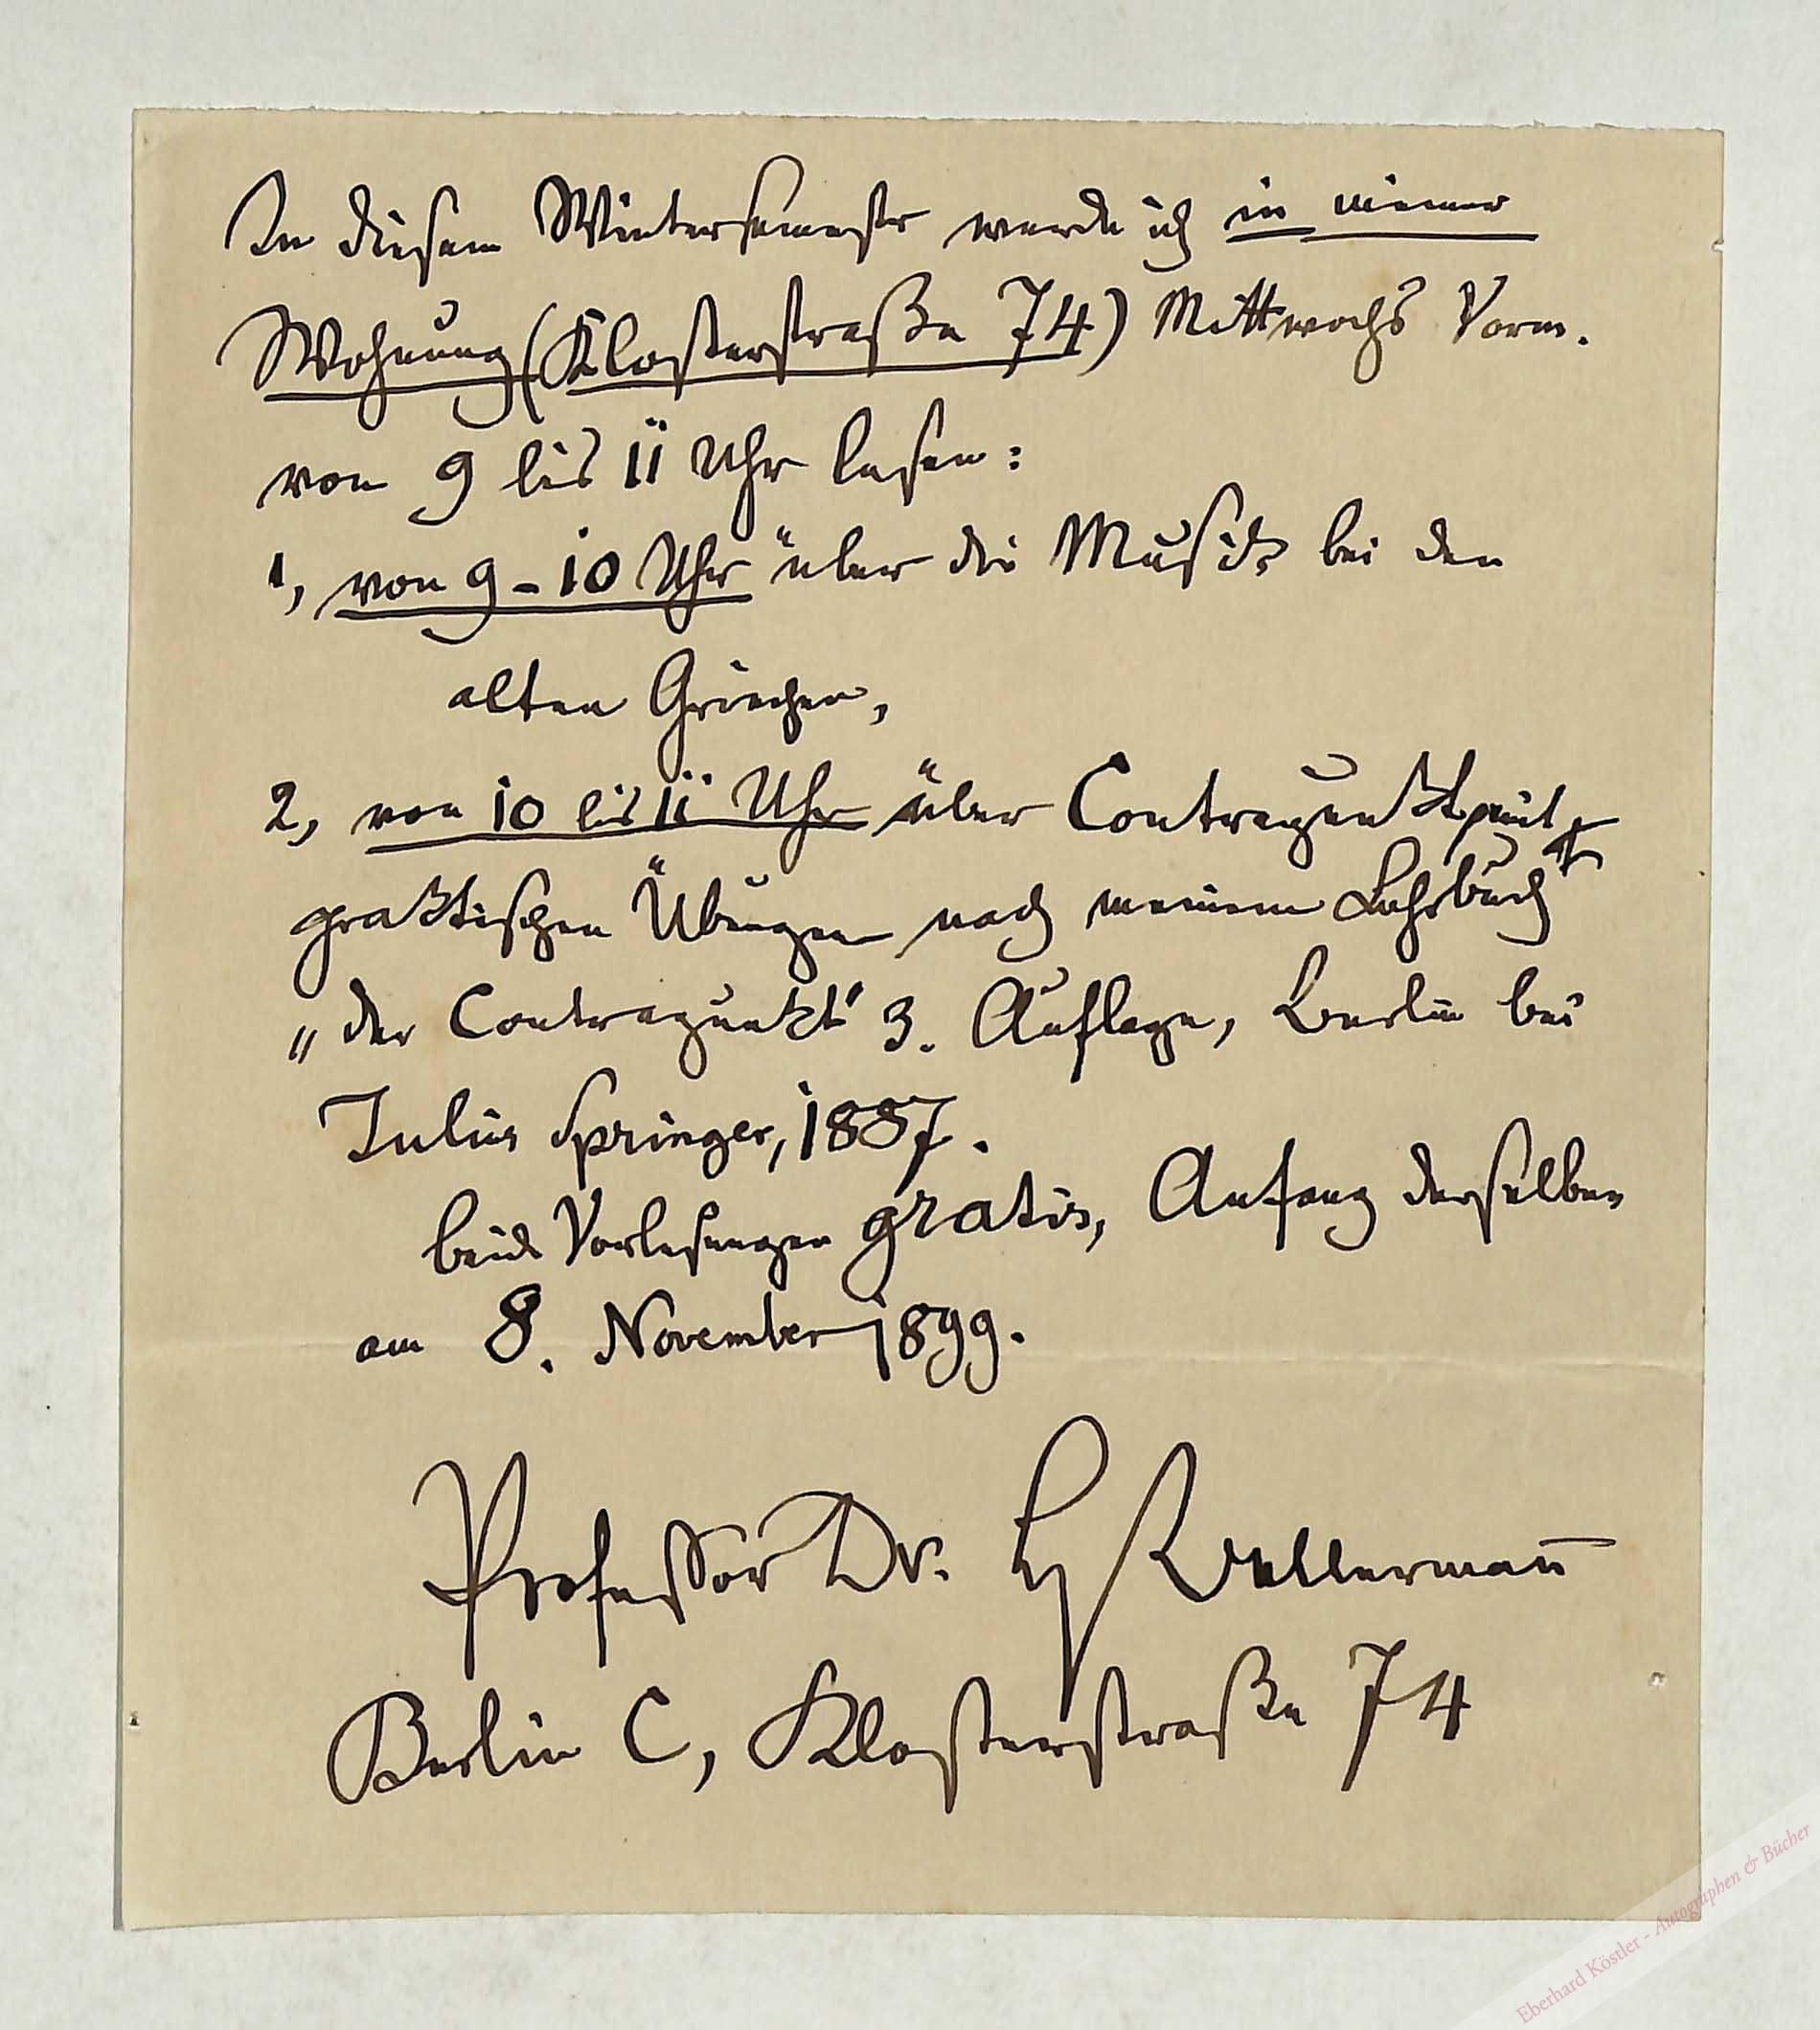 In diesem Wintersemester werde ich in meiner
Wohnung (Klosterstraße 74) Mittwochs Vorm.
von 9 bis 11 Uhr lesen:
1, von 9 - 10 Uhr über die Musik bei den
alten Griechen,
2, von 10 bis 11 Uhr über Contrapunkt mit
praktischen Übungen nach meinem Lehrbuch
„der Contrapunkt" 3. Auflage, Berlin bei
Julius Springer, 1887.
beide Vorlesungen gratis, Anfang derselben
am 8. November 1899.
Professor Dr. H Bellermann
Berlin C, Klosterstraße 74
Eberhard Köstler - Autographen & Bücher